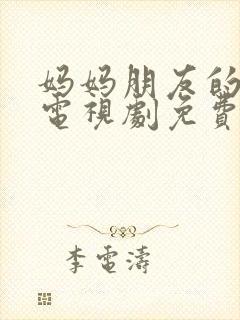 妈妈朋友的
電視劇免費
李電濤